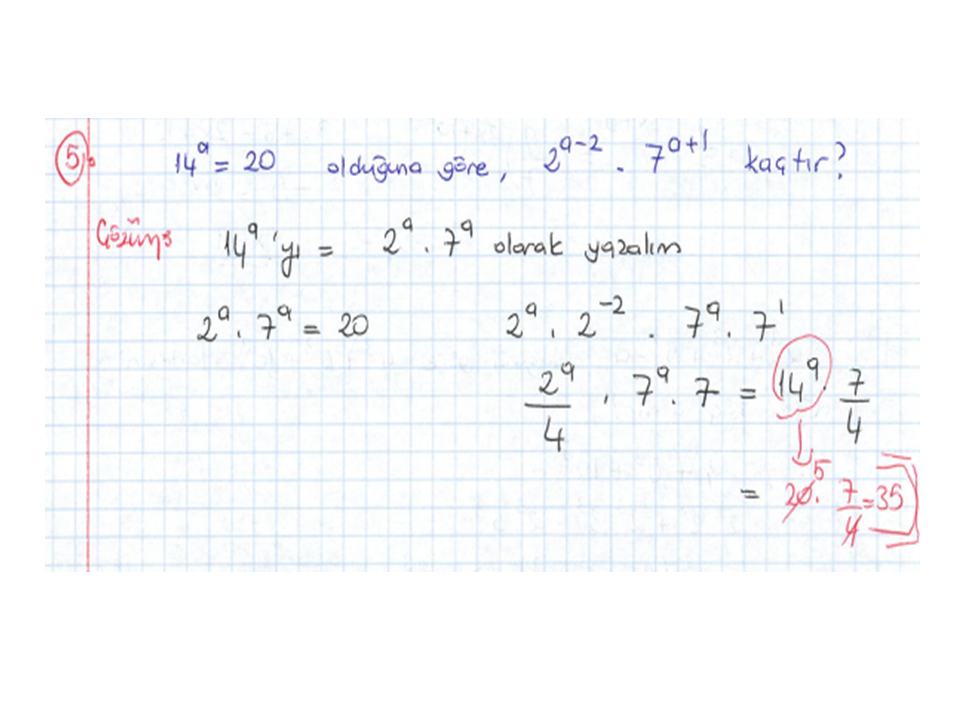 5) 14^a = 20 olduğuna göre, 2^(a-2) . 7^(a+1) kaçtır?
Çözüm: 14^a 'yı = 2^a . 7^a olarak yazalım
2^a . 7^a = 20 2^a . 2^-2 . 7^a . 7^1
2^a/4 . 7^a . 7 = 14^a . 7/4
= 20 . 7/4 = 35
5